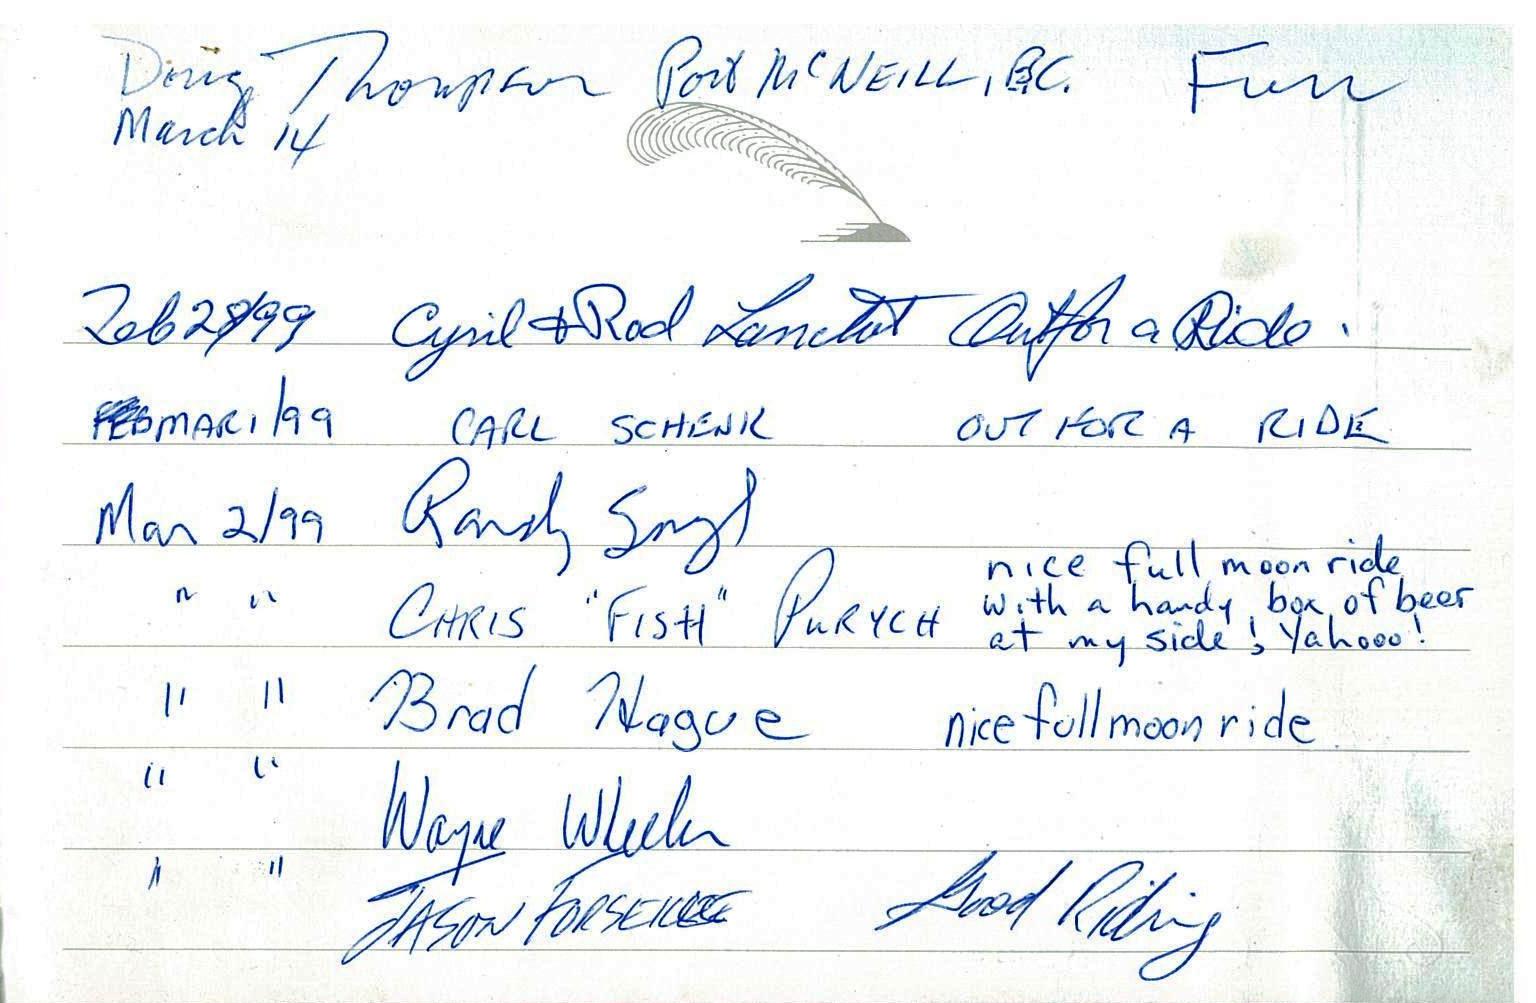 Doug Thompson Port McNEILL, B.C. Fun
March 14
Feb 28/99 Cyril & Rod Lanctot Out for a Ride.
MAR 1/99 CARL SCHENK OUT FOR A RIDE
Mar 2/99 Randy
" " CHRIS "FISH" PURYCH nice full moon ride
with a handy box of beer
at my side! Yahooo!
" " Brad Hague nice full moon ride
" " Wayne Wheeler
" " JASON Good Riding